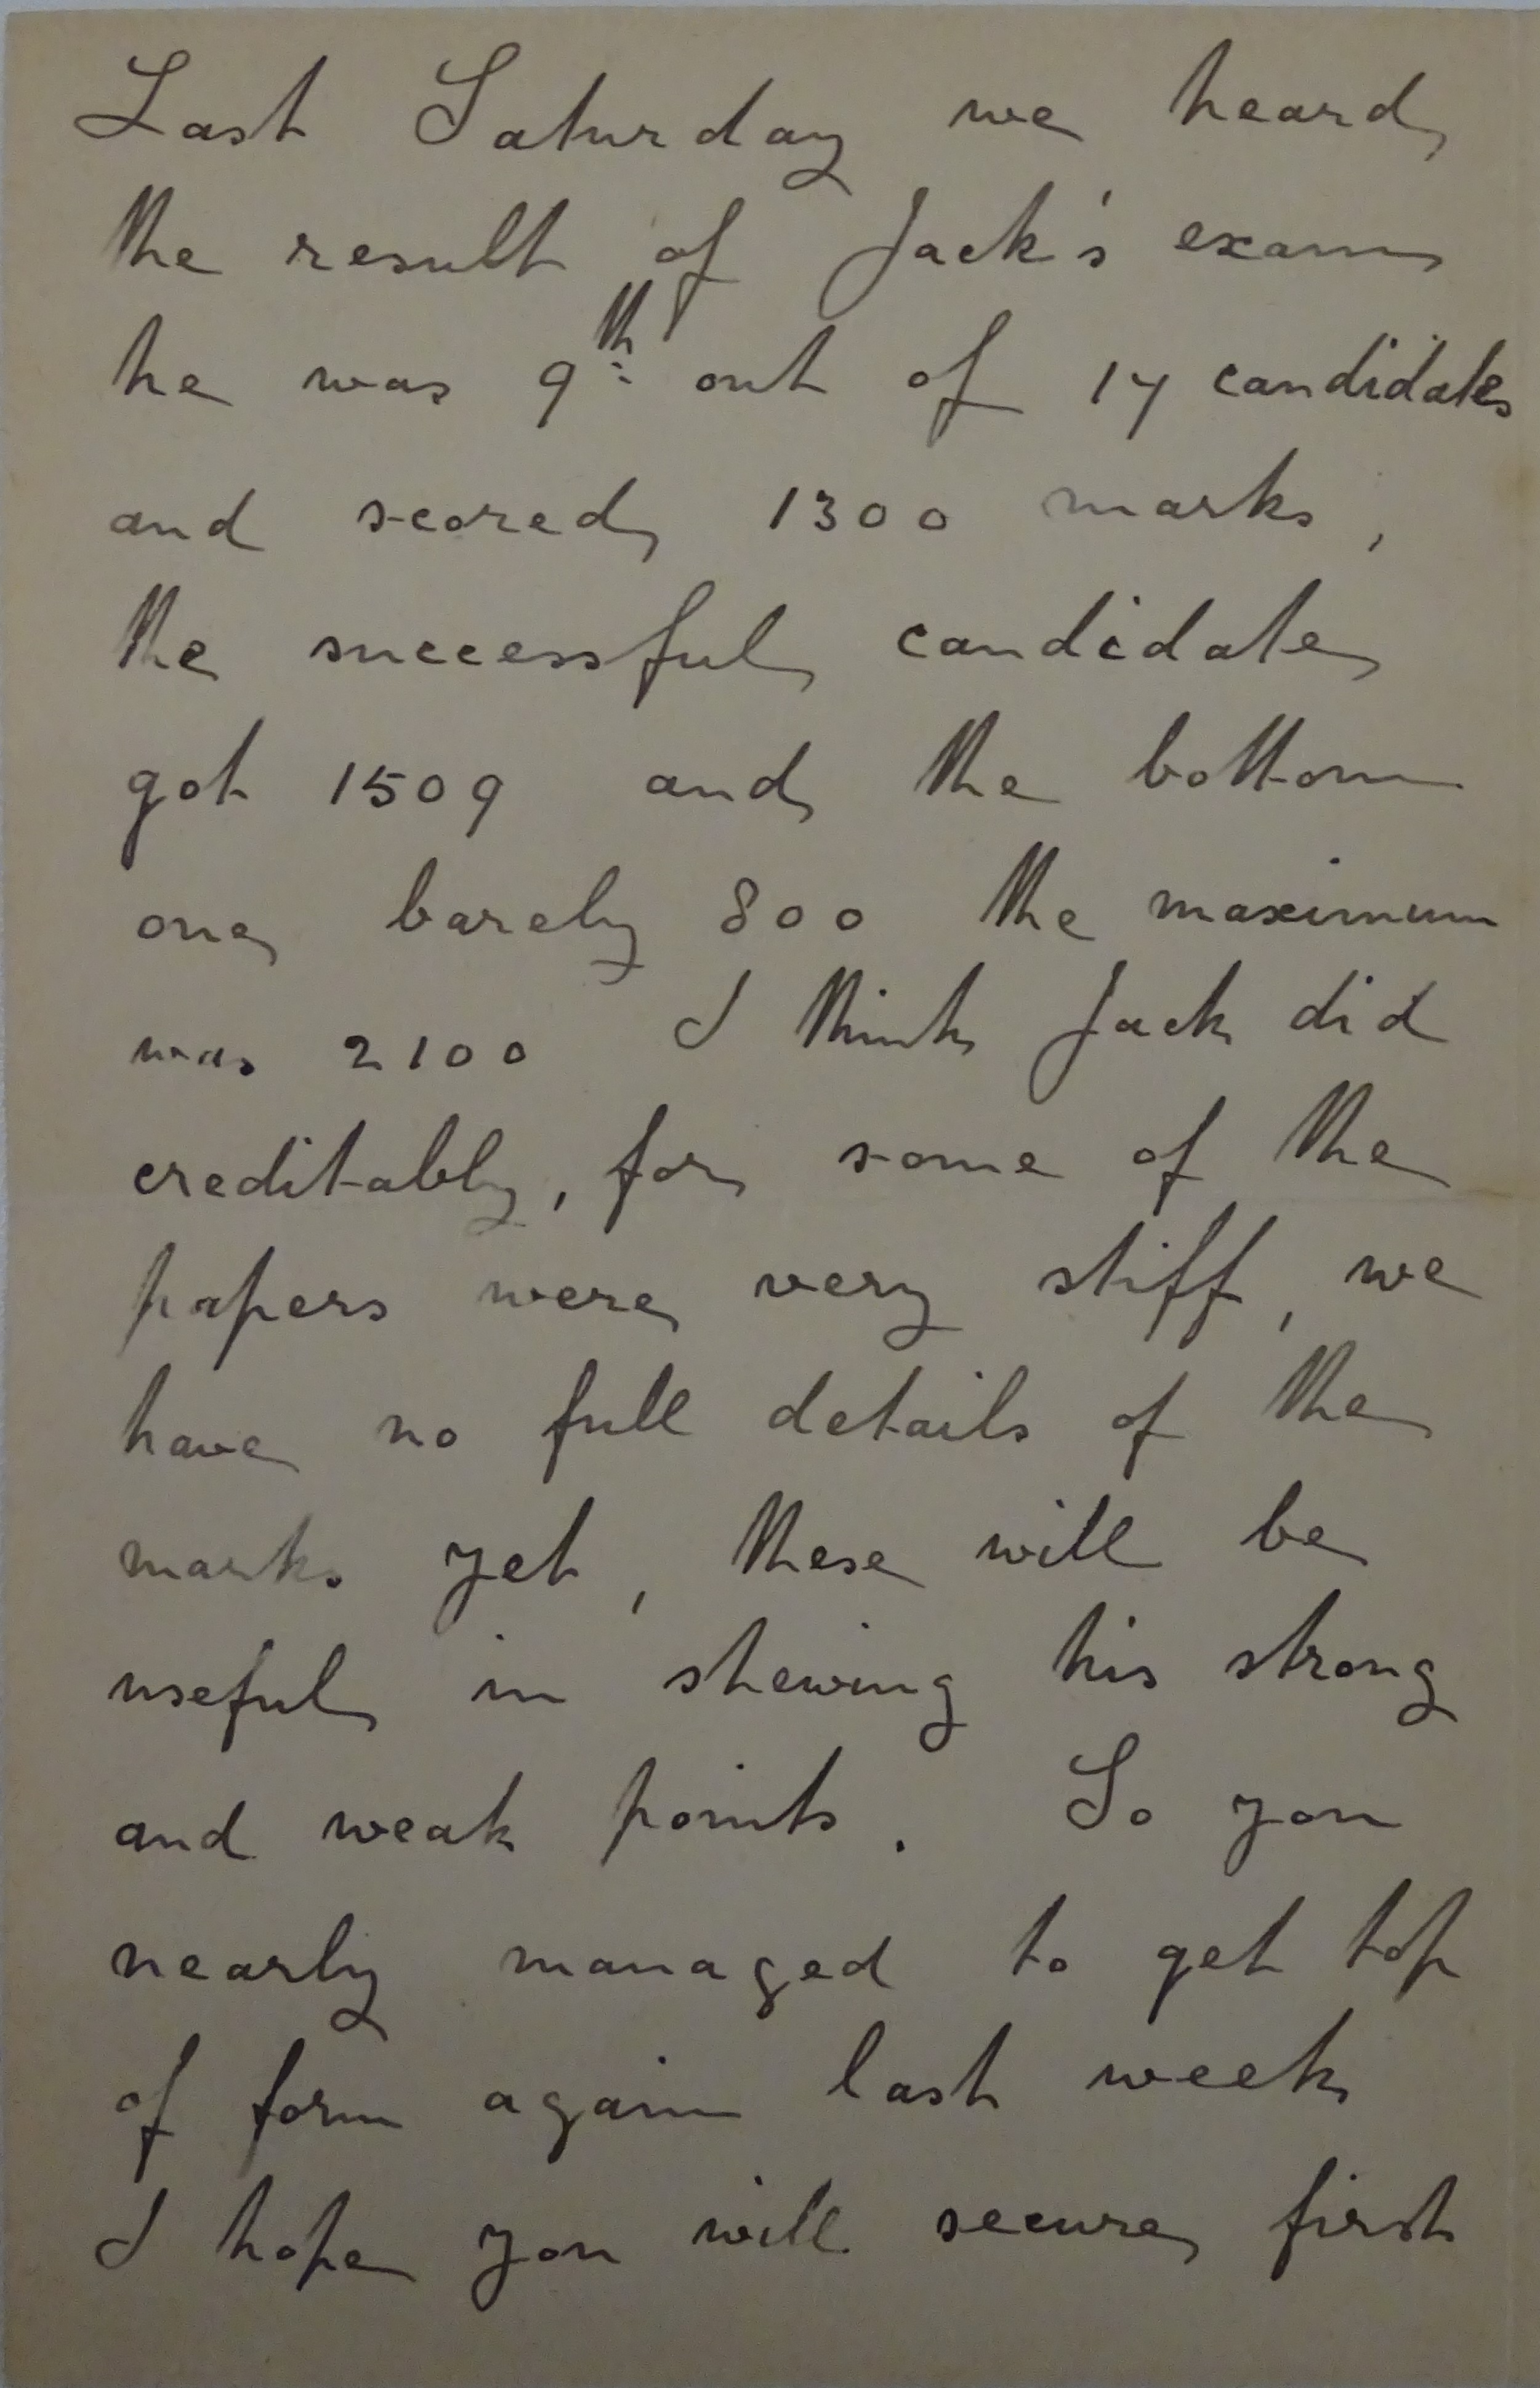 Last Saturday we heard
the result of Jack's exam
he was 9th out of 17 candidates
and scored 1300 marks,
the successful candidate
got 1509 and the bottom
one barely 800 the maximum
was 2100 I think Jack did
creditably, for some of the
papers were very stiff, we
have no full details of the
marks yet, these will be
useful in shewing his strong
and weak points. So you
nearly managed to get top
of form again last week
I hope you will secure first